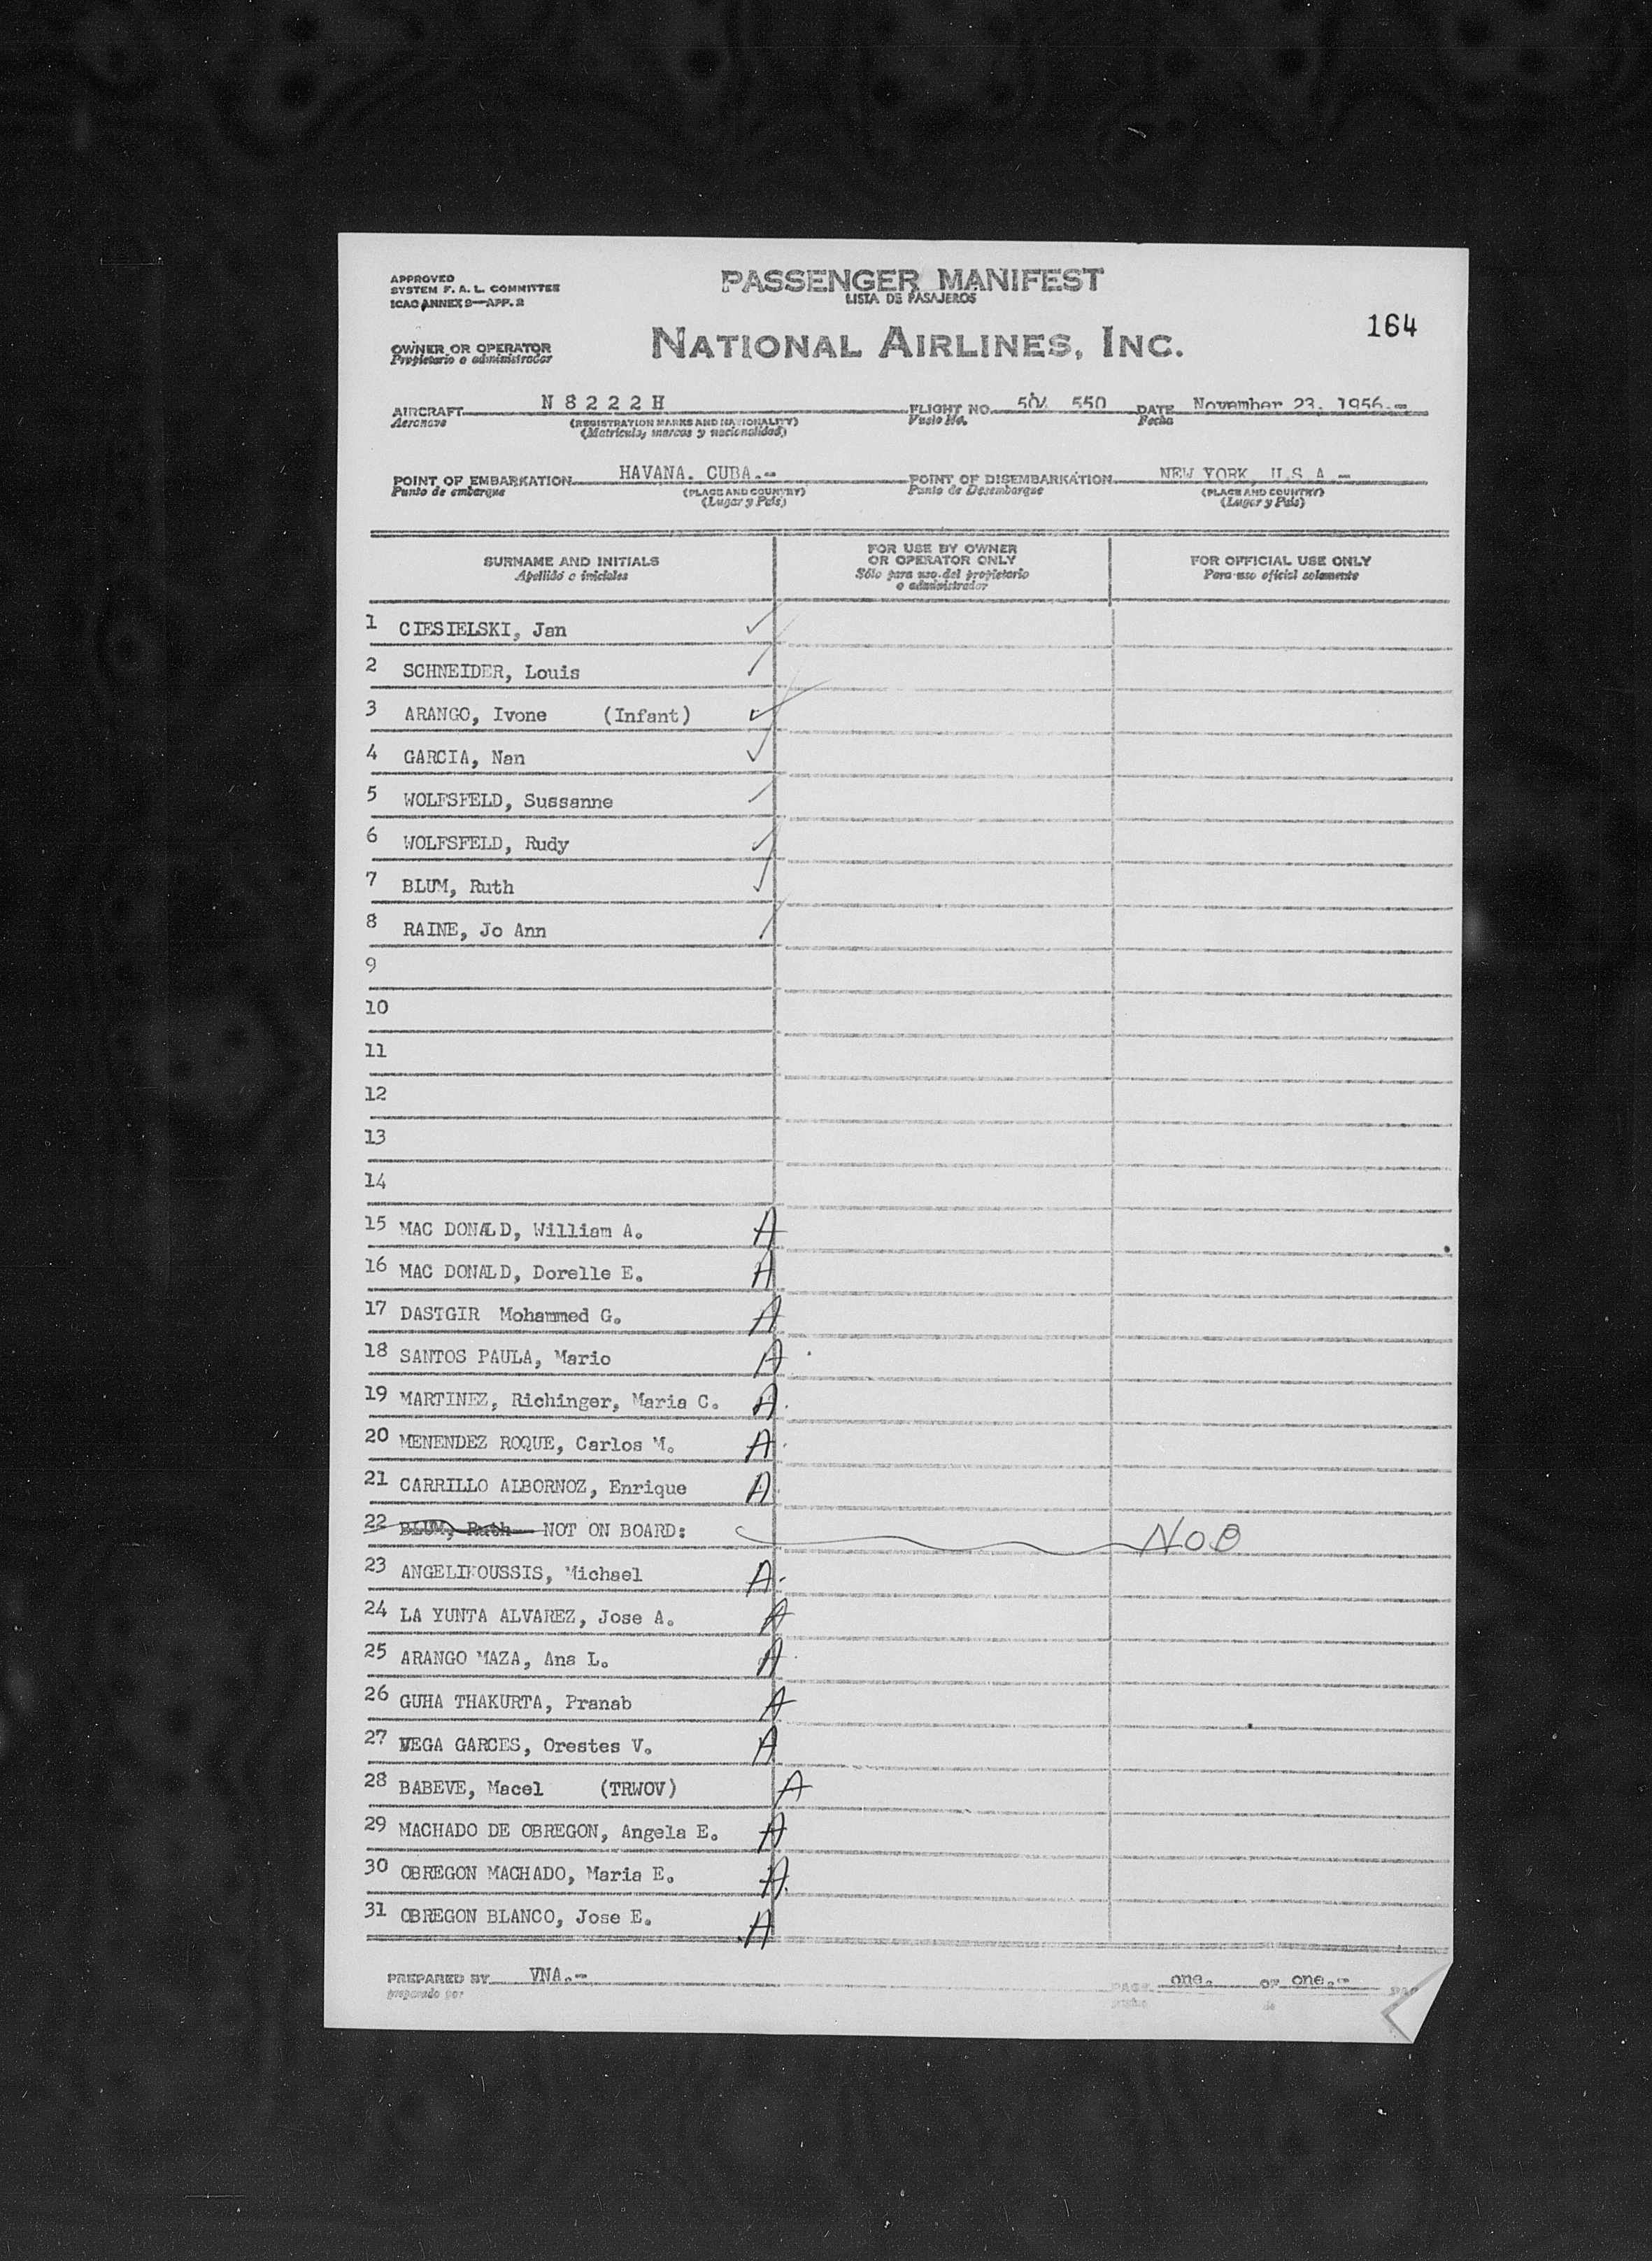 APPROVED
SYSTEM F. A. L. COMMITTEE
ICAO ANNEX 9—APP. 2
PASSENGER MANIFEST
LISTA DE PASAJEROS
164
NATIONAL AIRLINES, INC.
OWNER OR OPERATOR
Propietario o administrador
AIRCRAFT N 8 2 2 2 H FLIGHT NO. 504 550 DATE November 23, 1956.-
Aeronave (REGISTRATION MARKS AND NATIONALITY) Vuelo No. Fecha
(Matricula, marcas y nacionalidad)
POINT OF EMBARKATION HAVANA. CUBA.- POINT OF DISEMBARKATION NEW YORK, U.S.A.-
Punto de embarque (PLACE AND COUNTRY) Punto de Desembarque (PLACE AND COUNTRY)
(Lugar y País) (Lugar y País)
SURNAME AND INITIALS
Apellido o iniciales
FOR USE BY OWNER
OR OPERATOR ONLY
Sólo para uso del propietario
o administrador
FOR OFFICIAL USE ONLY
Para uso oficial solamente
1 CIESIELSKI, Jan
2 SCHNEIDER, Louis
3 ARANGO, Ivone (Infant)
4 GARCIA, Nan
5 WOLFSFELD, Sussanne
6 WOLFSFELD, Rudy
7 BLUM, Ruth
8 RAINE, Jo Ann
9
10
11
12
13
14
15 MAC DONALD, William A. A
16 MAC DONALD, Dorelle E. A
17 DASTGIR Mohammed G. A
18 SANTOS PAULA, Mario A
19 MARTINEZ, Richinger, Maria C. A
20 MENENDEZ ROQUE, Carlos M. A
21 CARRILLO ALBORNOZ, Enrique A
22 BLUM, Ruth NOT ON BOARD: NOB
23 ANGELIKOUSSIS, Michael A
24 LA YUNTA ALVAREZ, Jose A. A
25 ARANGO MAZA, Ana L. A
26 GUHA THAKURTA, Pranab A
27 VEGA GARCES, Orestes V. A
28 BABEVE, Macel (TRWOV) A
29 MACHADO DE OBREGON, Angela E. A
30 OBREGON MACHADO, Maria E. A
31 OBREGON BLANCO, Jose E. A
PREPARED BY VNA.- PAGE one. OF one.-
preparado por de